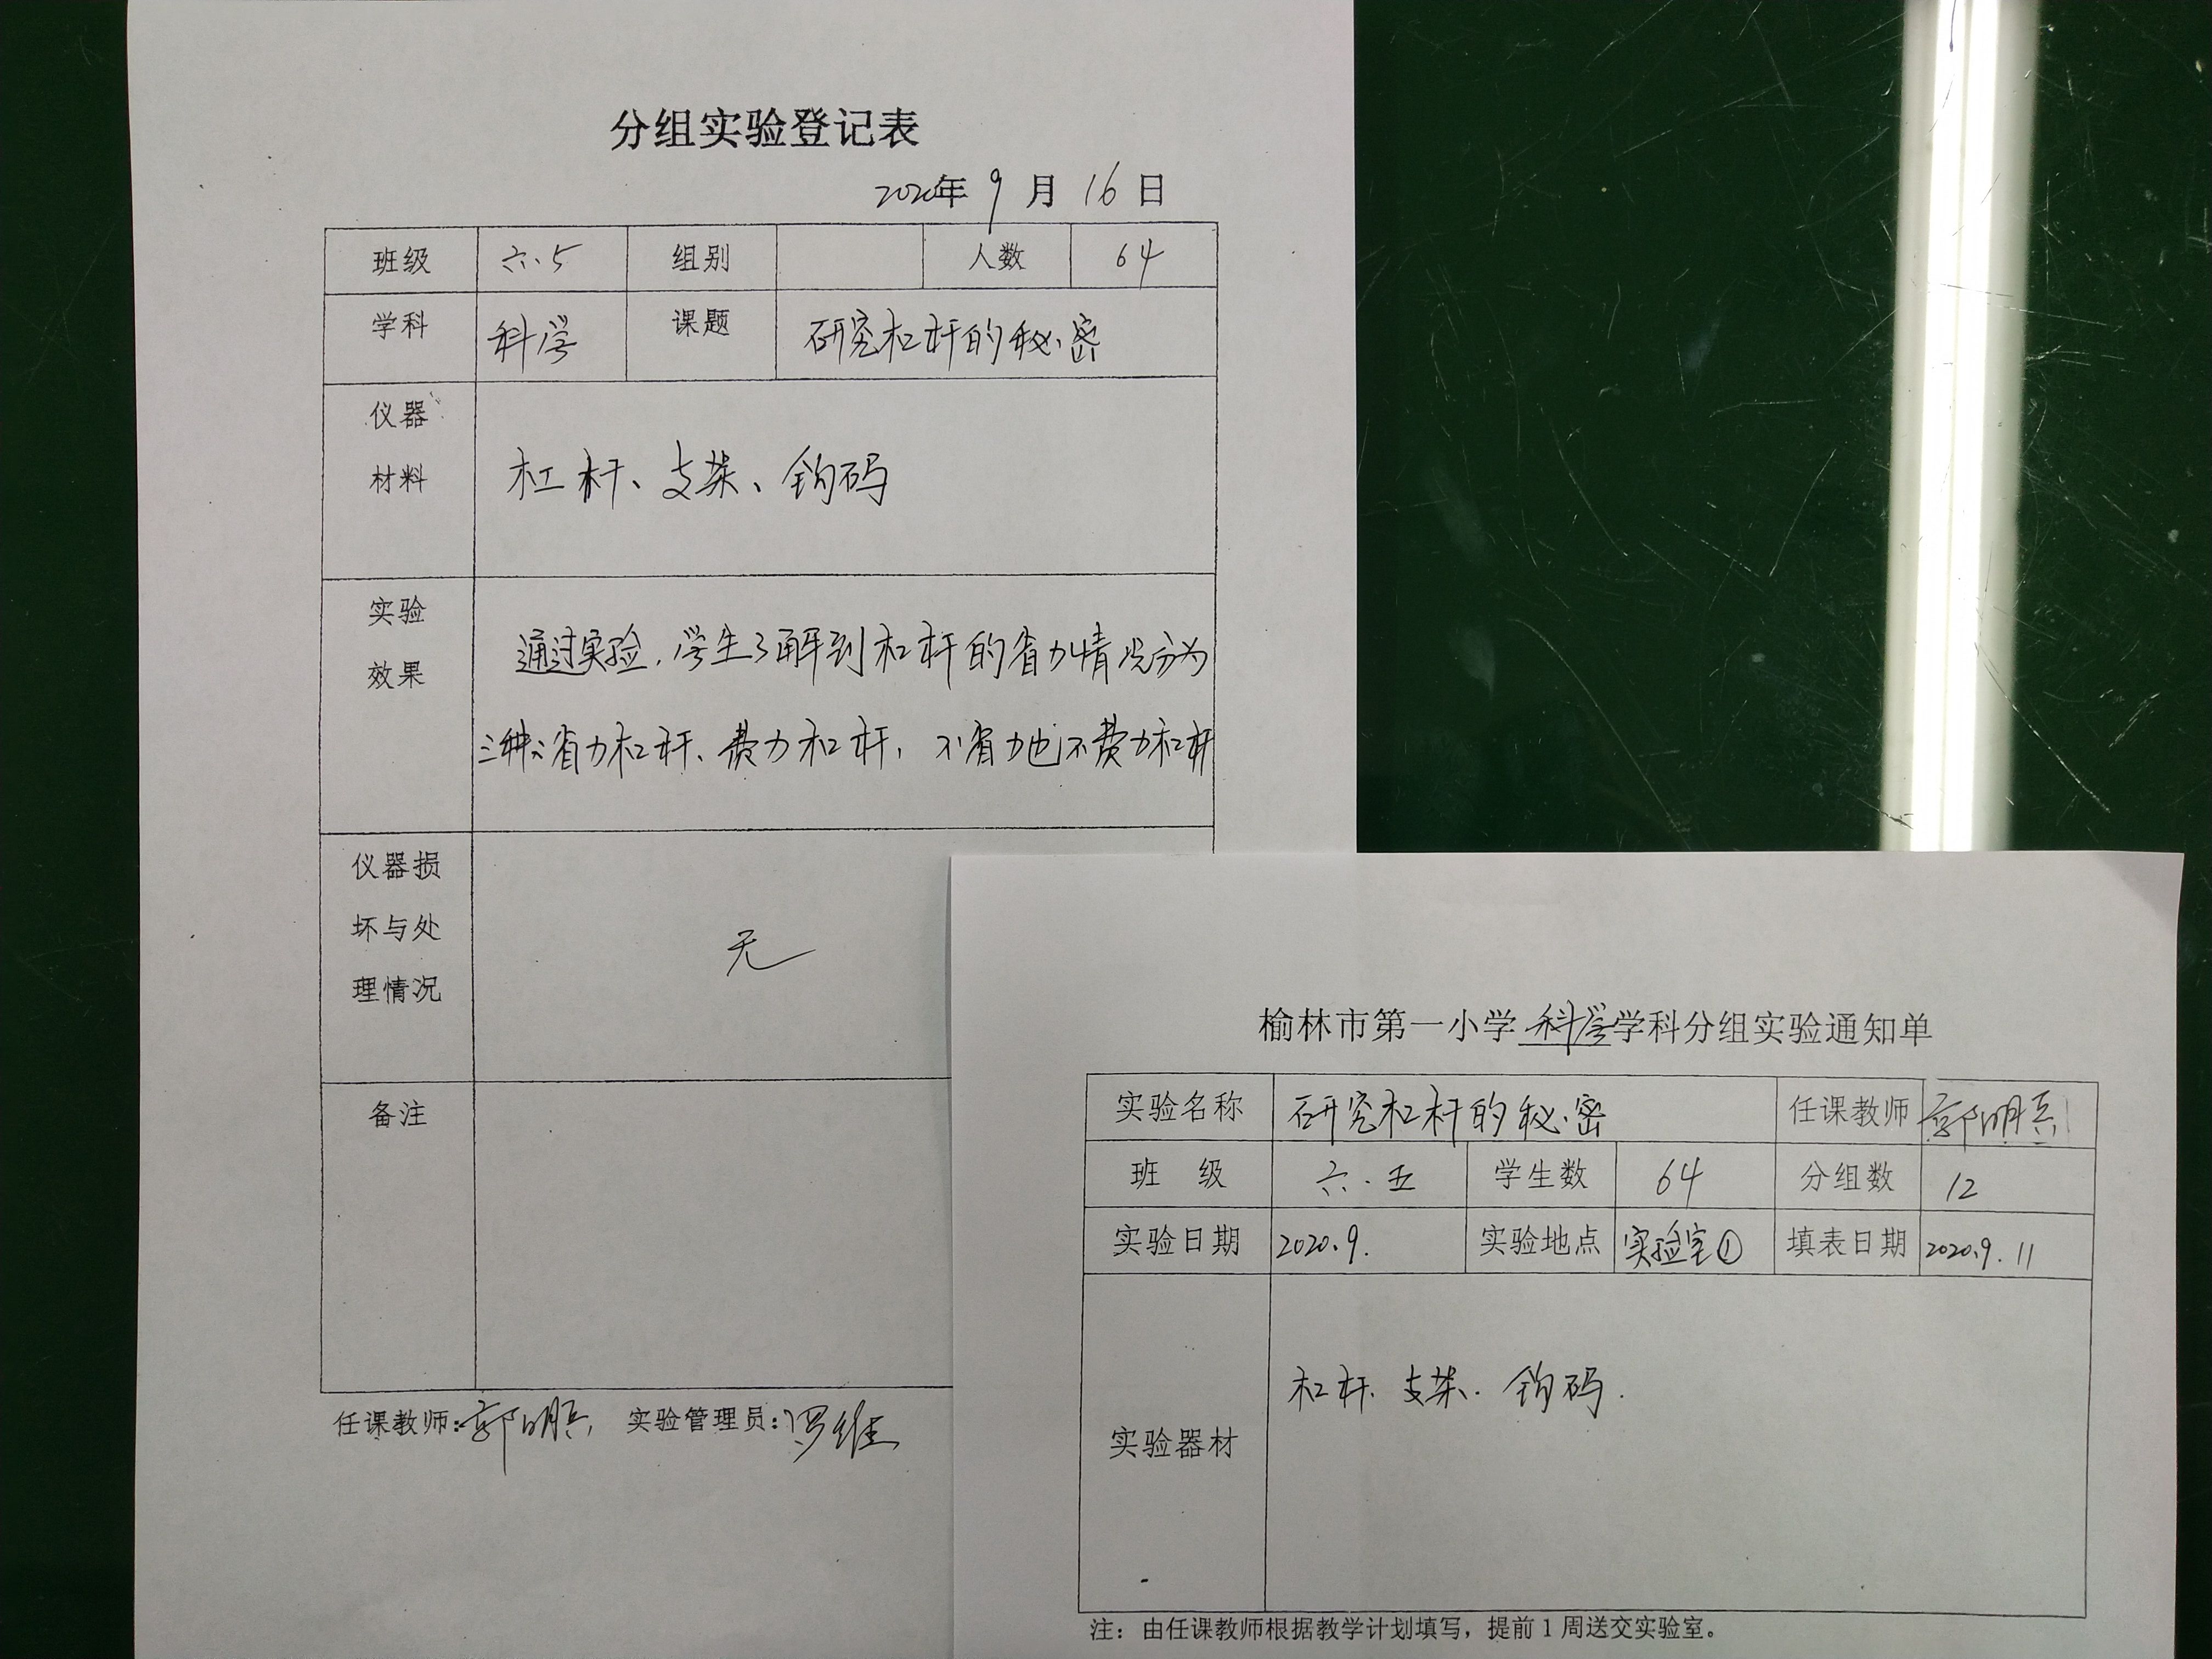 分组实验登记表
2020年 9 月 16 日
班级 六.5 组别 人数 64
学科 科学 课题 研究杠杆的秘密
仪器
材料 杠杆、支架、钩码
实验 通过实验,学生了解到杠杆的省力情况分为
效果 三种:省力杠杆、费力杠杆,不省力也不费力杠杆
仪器损
坏与处 无
理情况
备注
任课教师:郭明兵 实验管理员:罗维
榆林市第一小学 科学 学科分组实验通知单
实验名称 研究杠杆的秘密 任课教师 郭明兵
班 级 六.五 学生数 64 分组数 12
实验日期 2020.9. 实验地点 实验室① 填表日期 2020.9.11
实验器材 杠杆、支架、钩码.
注:由任课教师根据教学计划填写,提前1周送交实验室。